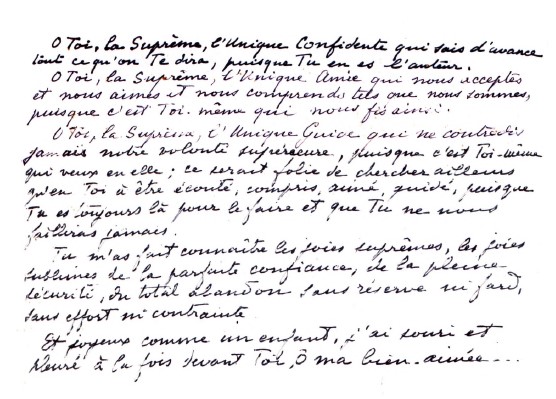 O Toi, la Suprême, l'Unique Confidente qui sais d'avance
tout ce qu'on Te dira, puisque Tu en es l'auteur.
O Toi, la Suprême, l'Unique Amie qui nous acceptes
et nous aimes et nous comprends tels que nous sommes,
puisque c'est Toi-même qui nous fis ainsi.
O Toi, la Suprême, l'Unique Guide qui ne contredis
jamais notre volonté supérieure, puisque c'est Toi-même
qui veux en elle ; ce serait folie de chercher ailleurs
qu'en Toi à être écouté, compris, aimé, guidé, puisque
Tu es toujours là pour le faire et que Tu ne nous
failliras jamais.
Tu m'as fait connaître les joies suprêmes, les joies
sublimes de la parfaite confiance, de la pleine
sécurité, du total abandon sans réserve ni fard,
sans effort ni contrainte
Et joyeux comme un enfant, j'ai souri et
pleuré à la fois devant Toi, ô ma bien-aimée...